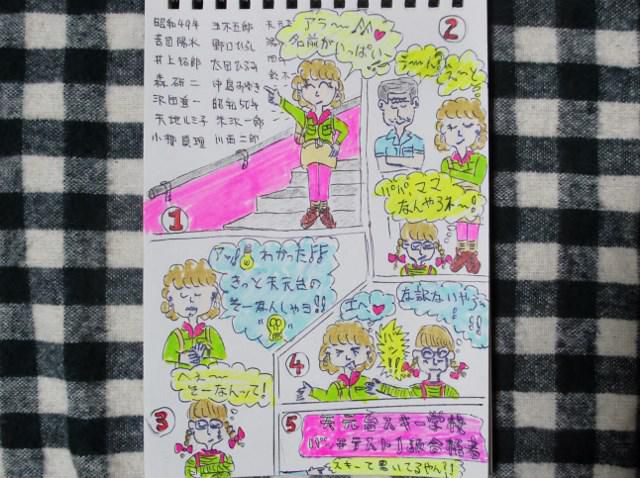 昭和49年 玉木五郎 天元
吉田陽水 野口ひろし
井上拓郎 太田ひろみ
森研二 中島みゆき
沢田憲一 昭和50年
天地ルミ子 朱次一郎
小柳真理 川西二郎
アラ〜
名前が
いっぱい〜
1
2
う〜ん
え〜と
パパ ママ
なんやろネ〜
アッ わかった
きっと天元台の
そーなんしゃヨ!!
へぇ〜
そーなんって!
3
4
エヘ
な訳ないやろっ
5
天元台スキー学校
バッヂテスト1級合格者
スキーって書いてるやん?!